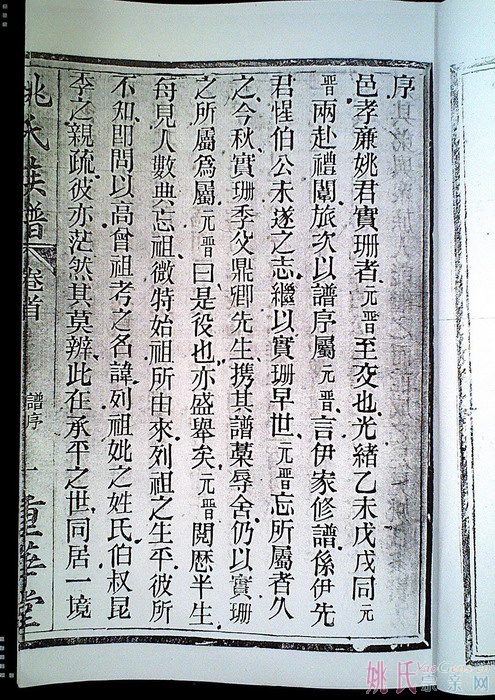 序
邑孝亷姚君實珊者元晋至交也光緒乙未戊戌同元
晋兩赴禮闈旅次以譜序屬元晋言伊家修譜係伊先
君惺伯公未遂之志繼以實珊早世元晋忘所屬者久
之今秋實珊季父鼎卿先生携其譜藁辱舍仍以實珊
之所屬爲屬元晋曰是役也亦盛舉矣元晋閲歴半生
每見人數典忘祖微特始祖所由來列祖之生平彼所
不知卽問以高曾祖考之名諱列祖妣之姓氏伯叔昆
季之親疏彼亦茫然其莫辨此在承平之世同居一境
姚氏族譜 卷首 譜序 一 重華堂
姚氏宗亲网